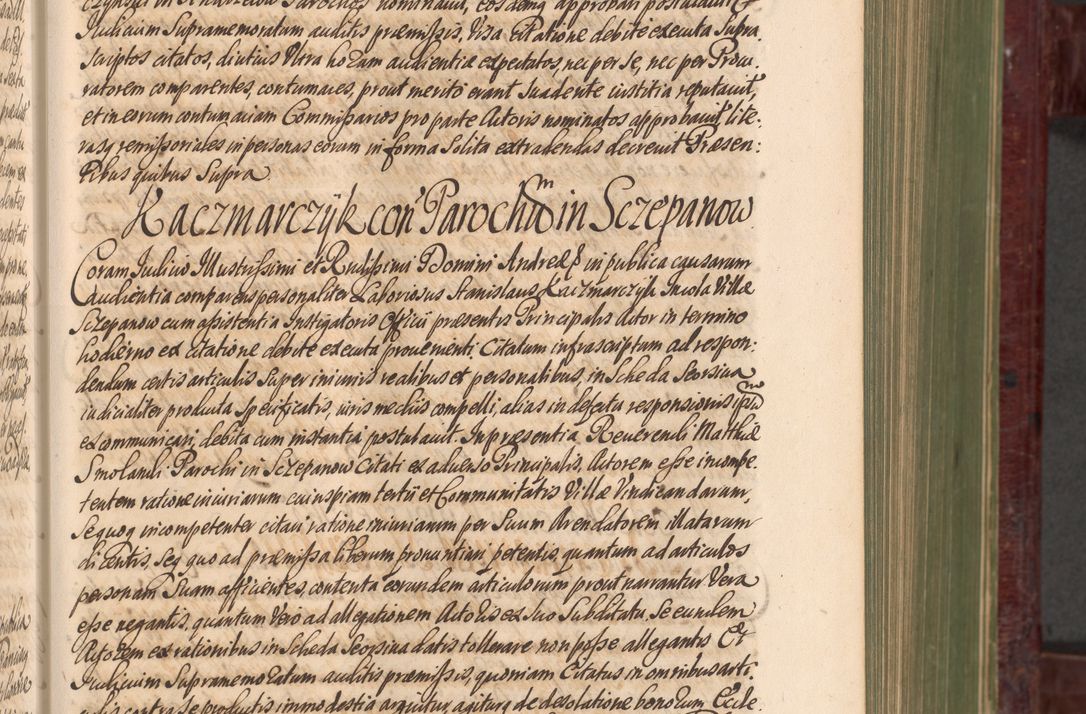 Judicium Supramemoratum auditis præmissis, Visa Citatione debite executa Supra
scriptos citatos, diutius Ultra horam audientiæ expectatos, nec per se, nec per Procu:
ratorem comparentes, contumaces, prout merito erant suadente iustitia reputauit,
et in eorum contumaciam Commissarios pro parte Actoris nominatos approbauit, lite:
rasq; remissoriales in personas eorum in forma Solita extradendas decreuit Præsen:
tibus quibus Supra
Kaczmarczyk con. Parochum in Sczepanow
Coram Judicio Illustrissimi et Rndissimi Domini Andreæ &c in publica causarum
Audientia comparens personaliter Laboriosus Stanislaus Kaczmarczyk Incola Villæ
Sczepanow cum assistentia Instigatoris Officii præsentis Principalis Actor in termino
hodierno ex citatione debite executa proueniente. Citatum infrascriptum ad respon:
dendum certis articulis Super iniuriis realibus et personalibus, in Scheda Seorsiua
iudicialiter producta Specificatis, iuris mediis compelli, alias in defectu responsionis ipsum
excommunicari, debita cum instantia postulauit. In præsentia Reuerendi Matthiæ
Smolandi Parochi in Sczepanow Citati ex aduerso Principalis, Actorem esse incompe:
tentem ratione iniuriarum cuiuspiam tertii et Communitatis Villæ Vindicandarum,
seq; incompetenter citari ratione iniuriarum per Suum Arendatorem illatarum
dicentis, seq; quo ad præmissa liberum pronuntiari petentis, quantum ad articulos
personam Suam afficientes, contenta eorundem articulorum prout narrantur Vera
esse negantis, quantum Vero ad allegationem Actoris ex Suo Subditatu, Se eundem
Actorem ex rationibus in Scheda Seorsiua datis tollerare non posse allegantis Et
Judicium Supramemoratum auditis præmissis, quoniam Citatus in omnibus arti:
culis contra se productis immodestia arguitur, agiturq; de desolatione bonorum Eccle: